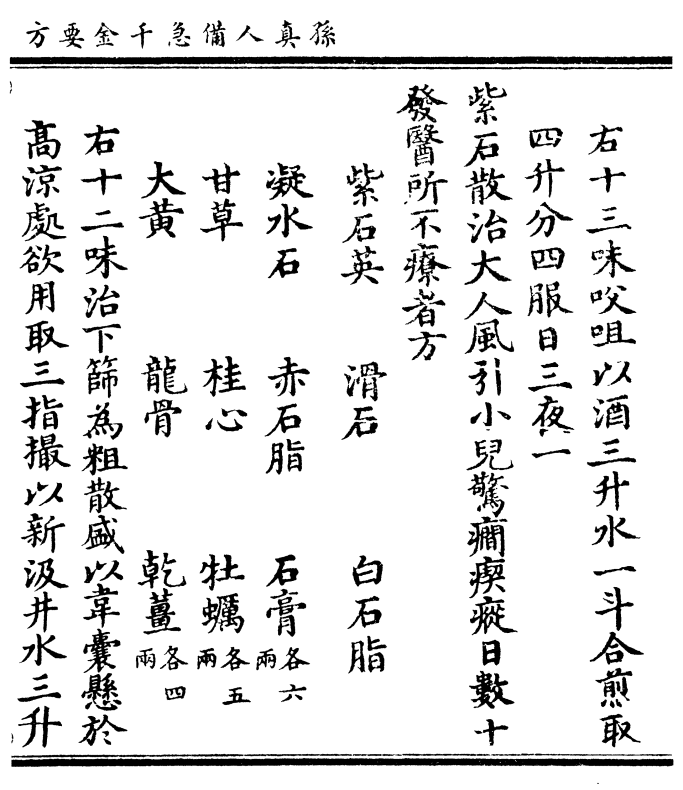 孫真人備急千金要方
右十三味㕮咀以酒三升水一斗合煎取
四升分四服日三夜一
紫石散治大人風引小兒驚癇瘈瘲日數十
發醫所不療者方
紫石英 滑石 白石脂
凝水石 赤石脂 石膏各六兩
甘草 桂心 牡蠣各五兩
大黃 龍骨 乾薑各四兩
右十二味治下篩為粗散盛以韋囊懸於
高涼處欲用取三指撮以新汲井水三升